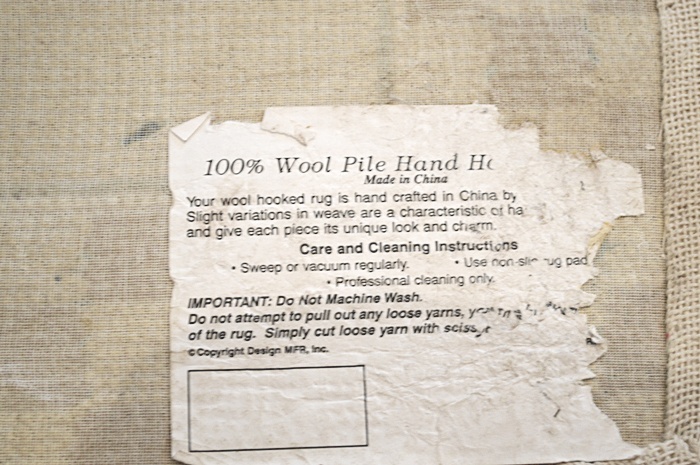 100% Wool Pile Hand
Made in China
Your wool hooked rug is hand crafted in China by
Slight variations in weave are a characteristic of
and give each piece its unique look and charm.
Care and Cleaning Instructions
• Sweep or vacuum regularly. • Use non-slip rug pad
• Professional cleaning only.
IMPORTANT: Do Not Machine Wash.
Do not attempt to pull out any loose yarns,
of the rug. Simply cut loose yarn with
©Copyright Design MFR, Inc.